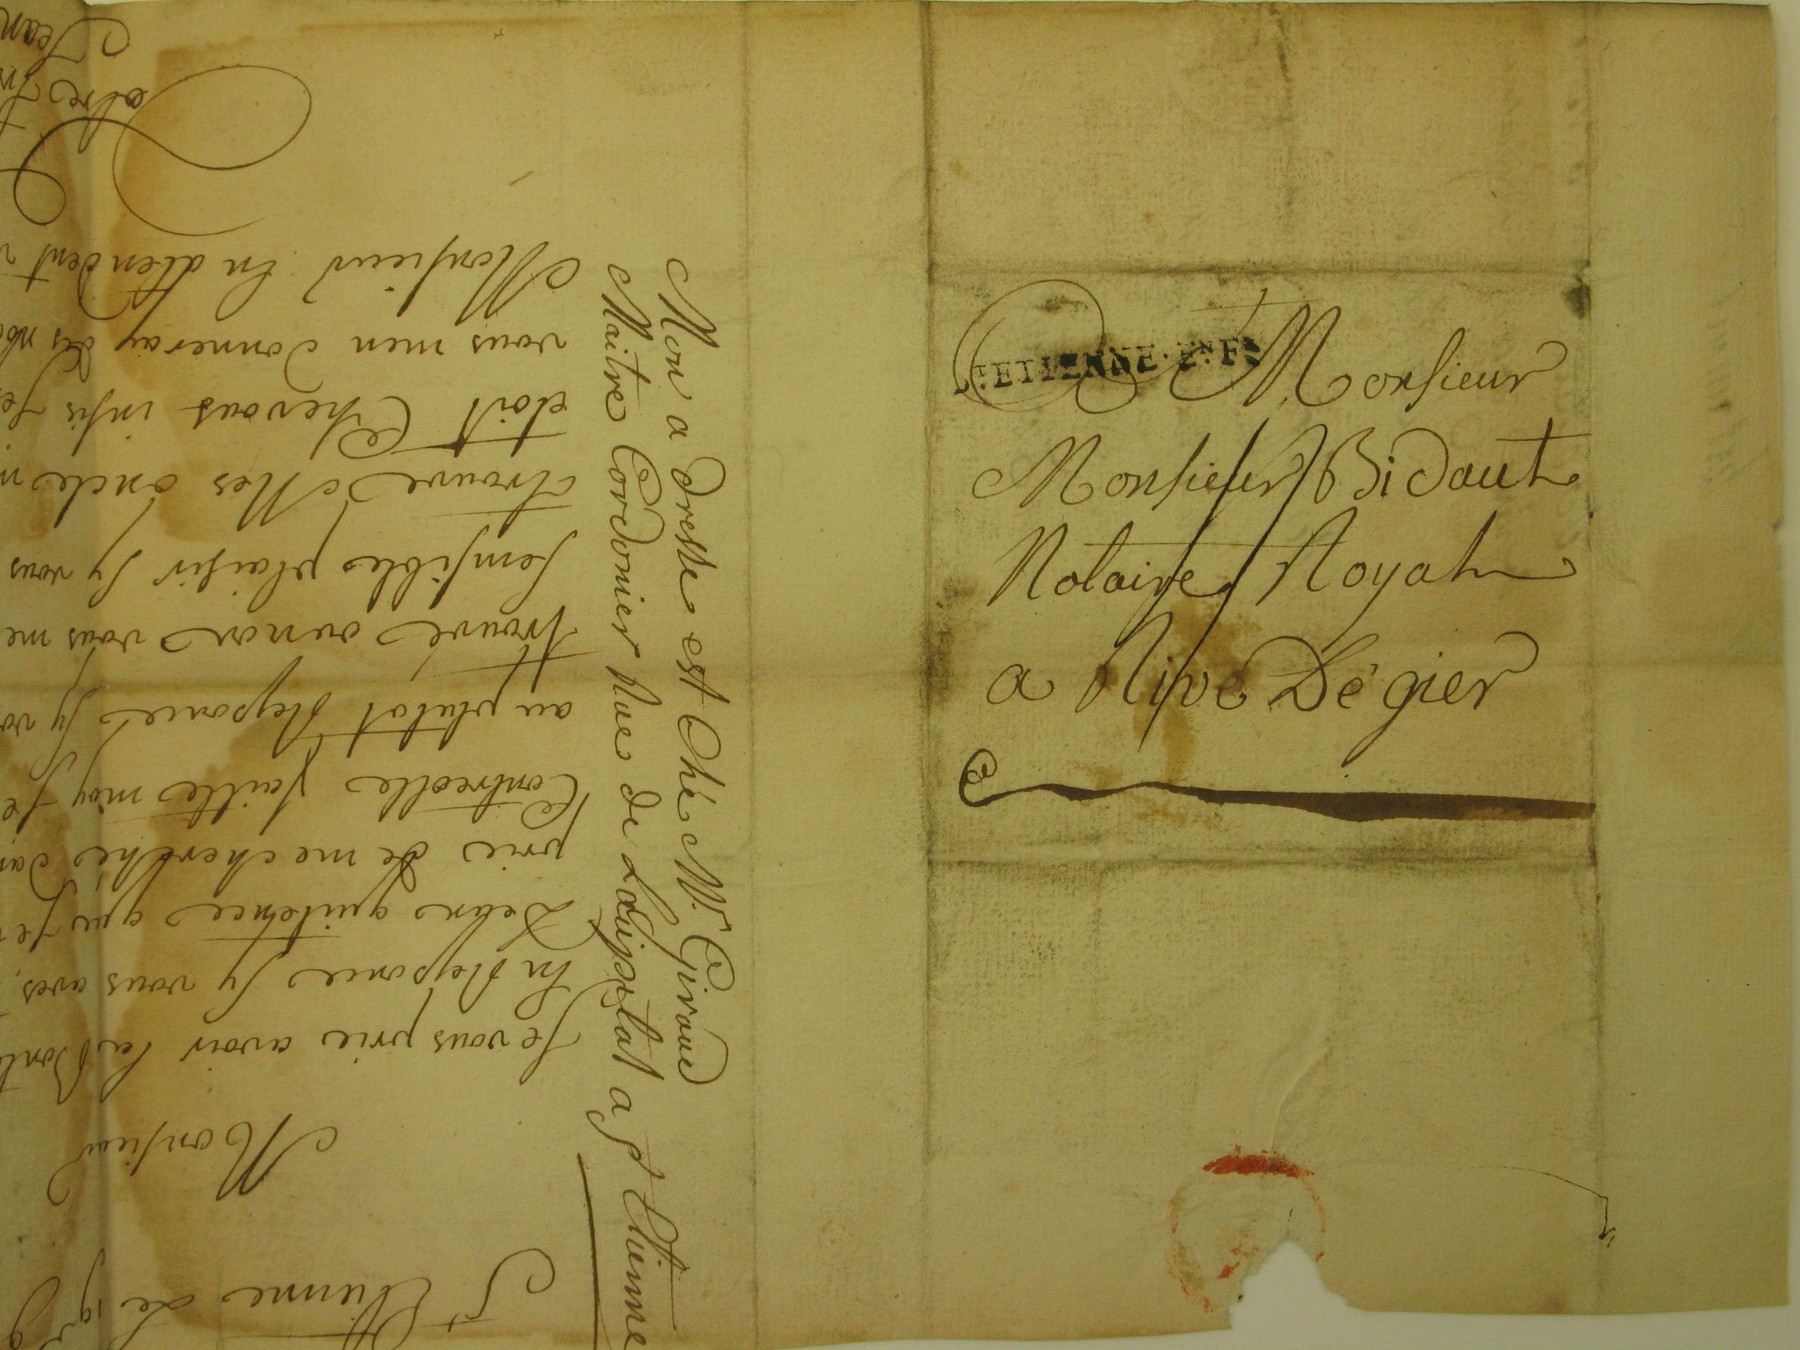 St ETIENNE·EN·F
A Monsieur
Monsieur Bidaut
Notaire Royal
a Rive De gier
Mon a dresse est Ché Mr Giraud
Maitre Cordonier Rue de Lopital a St Etienne
St Etienne Le 19
Monsieur
Je vous prie avoir la
En Reponce sy vous aves
quitence que je
prie de me cherchés
Controlle faitte moy
au plutot Reponce sy
trouvé ounon vous me
sensibles plaisir sy vous
trouve Mes oncle
étoit Chevous
vous men donneray des
Monsieur En atendent
votre
Jean